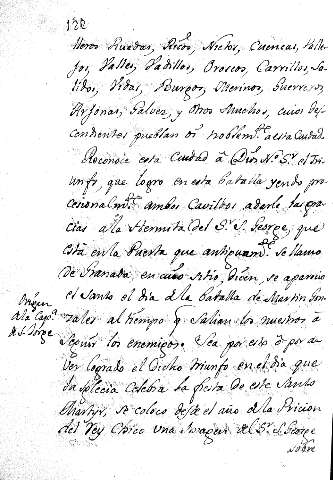 132
lleros Ruedas, Riços, Nietos, Cuencas, Valle-
jos, Valles, Vadillos, Oroscos, Carrillos, Sa-
lidos, Vidas, Burgos, Merinos, Guerreros
Arjonas, Galvez, y otros Muchos, cuios des-
cendientes pueblan oi noblem.te a esta Ciudad.
Reconoce esta ciudad â Dios N.o S.r el Tri-
unfo, que logro en esta batalla yendo pro-
cesionalm.te ambos Cavildos a darle las gra-
cias a la Hermita del S.r S. George, que
está en la Puerta que antiguam.te se llamo
de Granada en cuio sitio, dicen, se aparecio
el Santo el dia de la batalla de Martin Gon-
zales al tiempo q salian los nuestros â
Origen
a la Cap.a
de S. Jorge
seguir los enemigos. Sea por esto ô por a-
ver logrado el dicho triunfo en el dia que
la Iglecia celebra la fiesta de este Santo
Martyr, se coloco desde el año de la Pricion
del Rey Chico una Imagen del S.r S. George
sobre